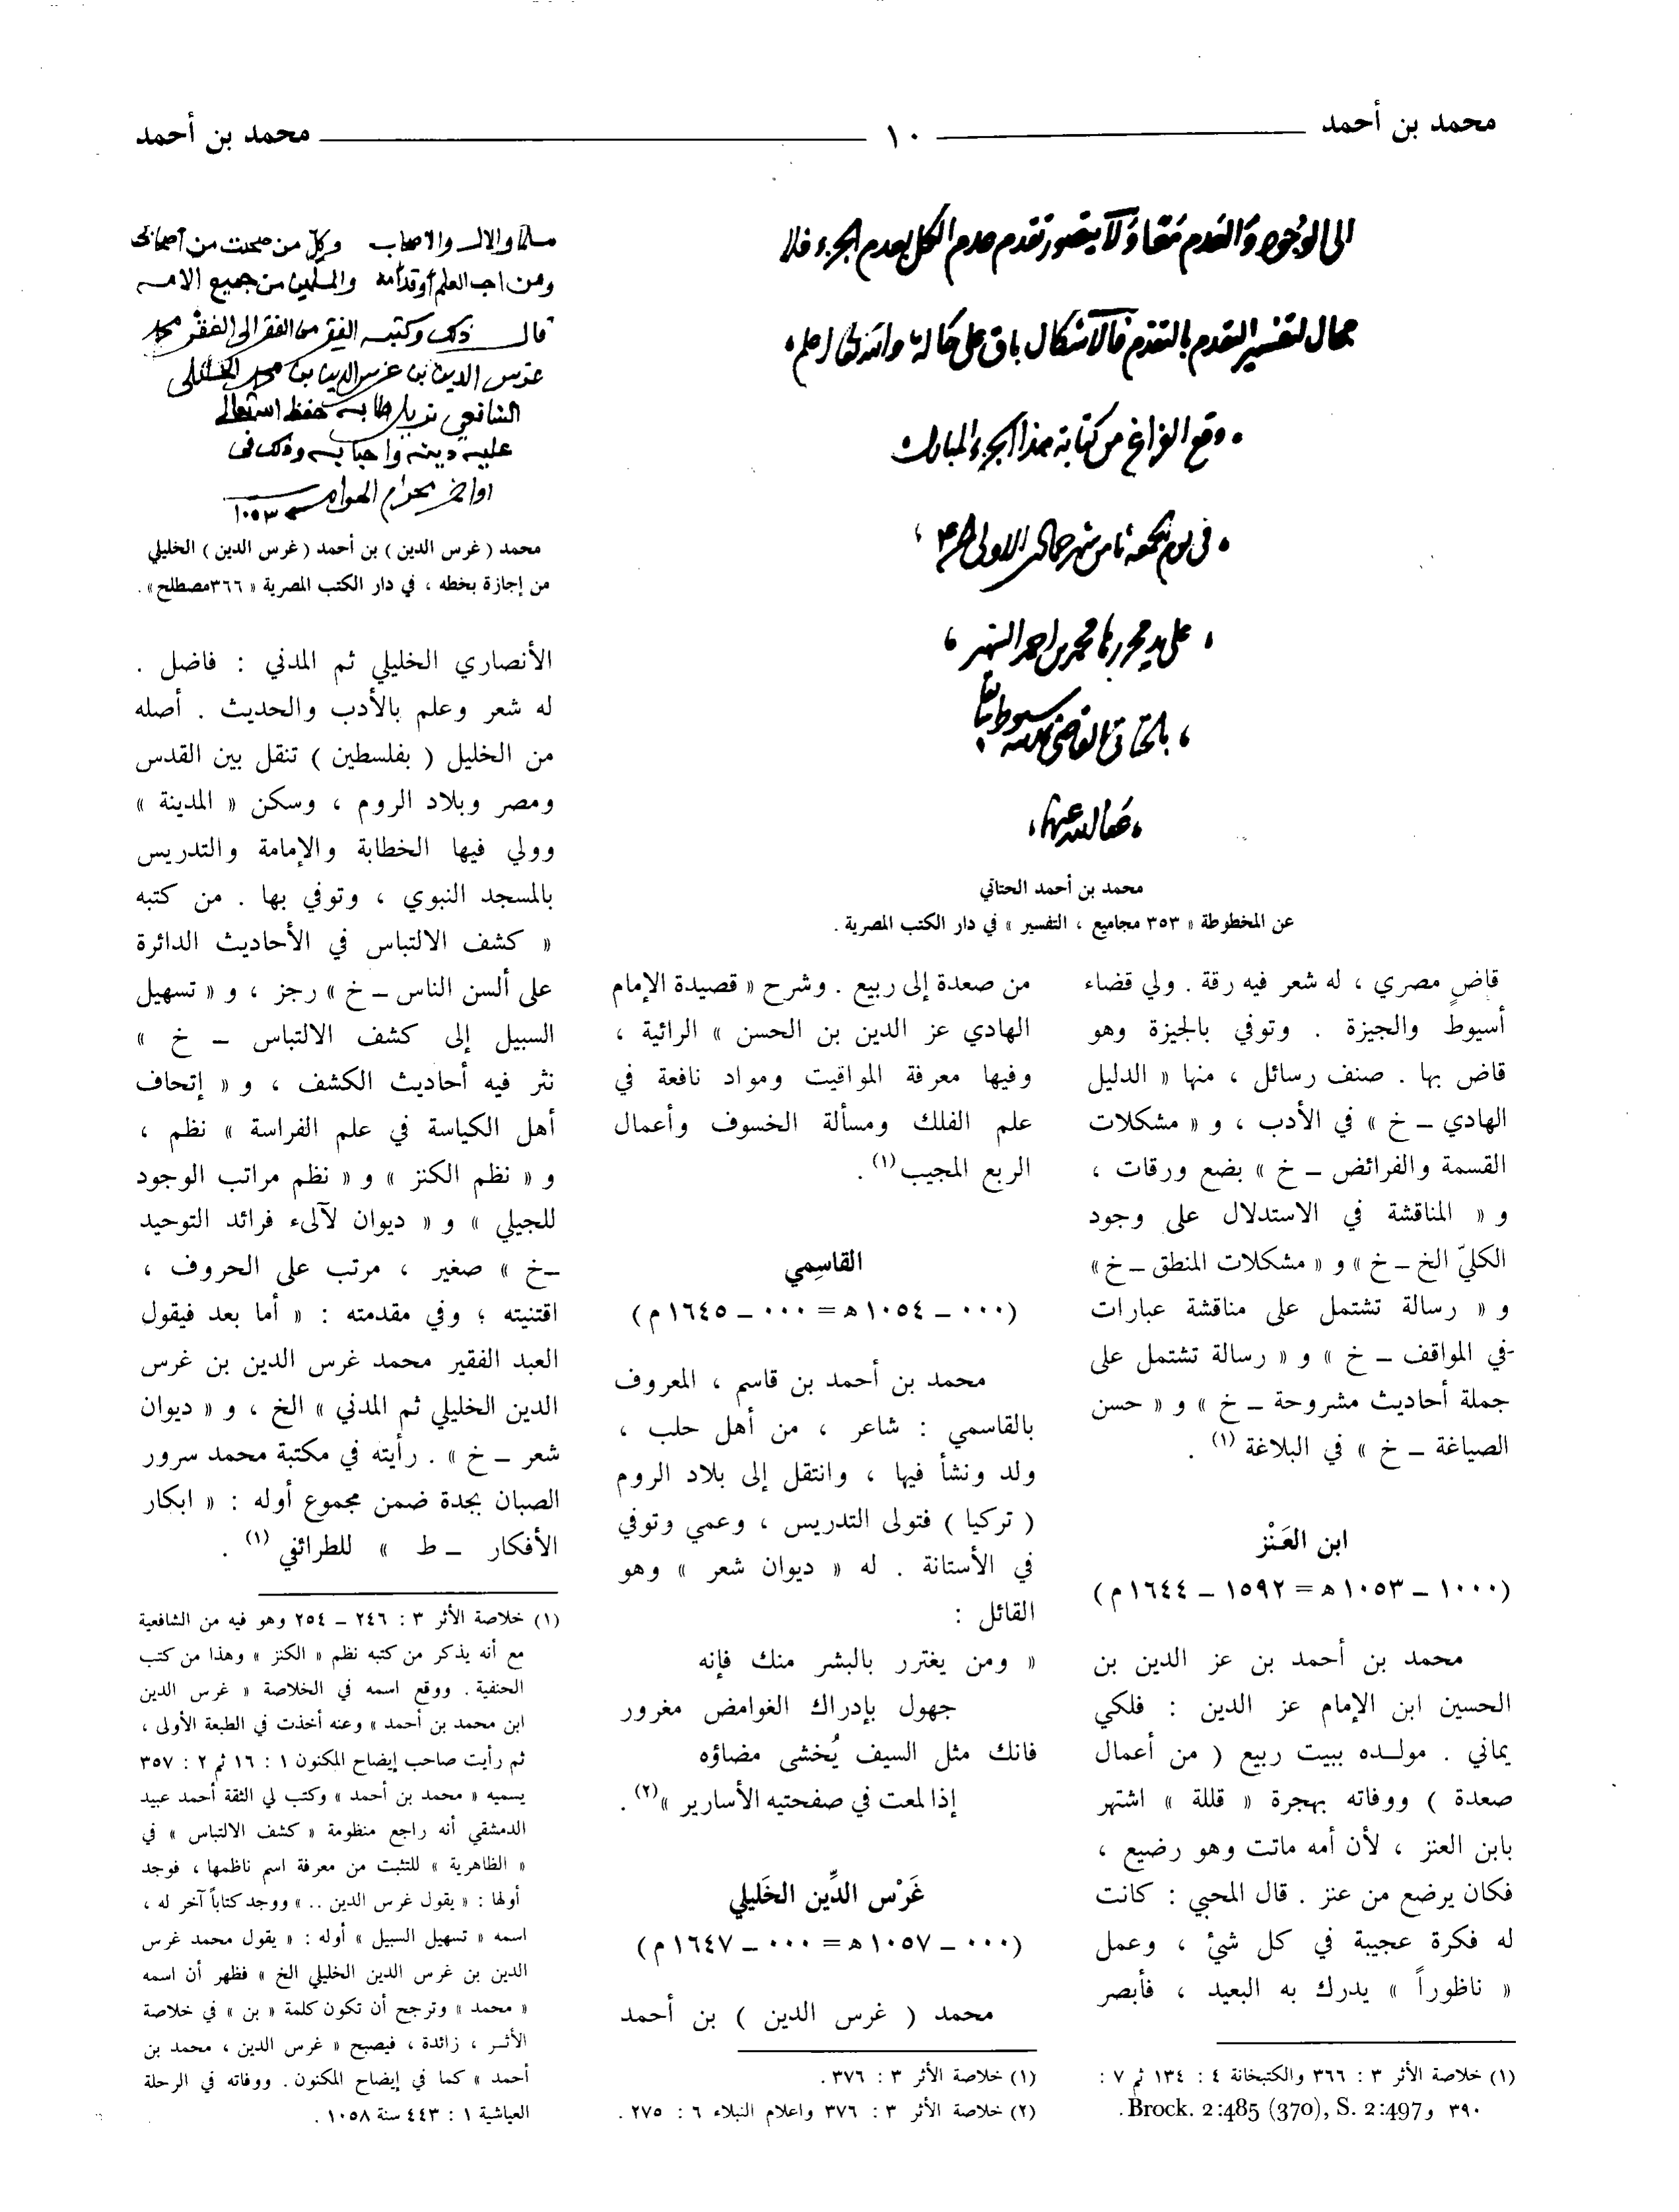 محمد بن أحمد ١٠ محمد بن أحمد
الى الوجود والعدم معا ولا يتصور تقدم عدم الكل بعدم الجزء فلا
مجال لتفسير التقدم بالتقدم فالاشكال باق على حاله والله تعالى اعلم
وقع الفراغ من كتابة هذا الجزء المبارك
في يوم الجمعة ثامن شهر جمادى الاولى
على يد محررها محمد بن احمد الشهير
بالحتاتي القاضي بمدينة سيوط
عفا الله عنهما
محمد بن أحمد الحتاتي
عن المخطوطة « ٣٥٣ مجاميع ، التفسير » في دار الكتب المصرية .
قاضٍ مصري ، له شعر فيه رقة . ولي قضاء
أسيوط والجيزة . وتوفي بالجيزة وهو
قاض بها . صنف رسائل ، منها « الدليل
الهادي ــ خ » في الأدب ، و « مشكلات
القسمة والفرائض ــ خ » بضع ورقات ،
و « المناقشة في الاستدلال على وجود
الكليّ الخ ــ خ » و « مشكلات المنطق ــ خ »
و « رسالة تشتمل على مناقشة عبارات
في المواقف ــ خ » و « رسالة تشتمل على
جملة أحاديث مشروحة ــ خ » و « حسن
الصياغة ــ خ » في البلاغة (١) .
ابن العَنْز
(١٠٠٠ ــ ١٠٥٣ ه = ١٥٩٢ ــ ١٦٤٤ م)
محمد بن أحمد بن عز الدين بن
الحسين ابن الإمام عز الدين : فلكي
يماني . مولده ببيت ربيع ( من أعمال
صعدة ) ووفاته بهجرة « قللة » اشتهر
بابن العنز ، لأن أمه ماتت وهو رضيع ،
فكان يرضع من عنز . قال المحبي : كانت
له فكرة عجيبة في كل شيْ ، وعمل
« ناظوراً » يدرك به البعيد ، فأبصر
(١) خلاصة الأثر ٣ : ٣٦٦ والكتبخانة ٤ : ١٣٤ ثم ٧ :
٣٩٠ و Brock. 2:485 (370), S. 2:497.
من صعدة إلى ربيع . وشرح « قصيدة الإمام
الهادي عز الدين بن الحسن » الرائية ،
وفيها معرفة المواقيت ومواد نافعة في
علم الفلك ومسألة الخسوف وأعمال
الربع المجيب (١) .
القاسِمي
(٠٠٠ ــ ١٠٥٤ ه = ٠٠٠ ــ ١٦٤٥ م)
محمد بن أحمد بن قاسم ، المعروف
بالقاسمي : شاعر ، من أهل حلب ،
ولد ونشأ فيها ، وانتقل إلى بلاد الروم
( تركيا ) فتولى التدريس ، وعمي وتوفي
في الأستانة . له « ديوان شعر » وهو
القائل :
« ومن يغترر بالبشر منك فإنه
جهول بإدراك الغوامض مغرور
فانك مثل السيف يُخشى مضاؤه
إذا لمعت في صفحتيه الأسارير » (٢) .
غَرْس الدِّين الخَليلي
(٠٠٠ ــ ١٠٥٧ ه = ٠٠٠ ــ ١٦٤٧ م)
محمد ( غرس الدين ) بن أحمد
(١) خلاصة الأثر ٣ : ٣٧٦ .
(٢) خلاصة الأثر ٣ : ٣٧٦ واعلام النبلاء ٦ : ٢٧٥ .
والال والاصحاب وكل من صحبت من أصحابى
ومن احب العلم والمسلمين من جميع الامه
قال ذلك وكتبه الفقير الى محمد
غرس الدين بن غرس الدين بن محمد الخليلى
الشافعي نزيل طابه حفظ الله تعالى
عليه دينه واحبابه وذلك فى
اواخر محرم الحرام ١٠٥٣
محمد ( غرس الدين ) بن أحمد ( غرس الدين ) الخليلي
من إجازة بخطه ، في دار الكتب المصرية « ٣٦٦ مصطلح » .
الأنصاري الخليلي ثم المدني : فاضل .
له شعر وعلم بالأدب والحديث . أصله
من الخليل ( بفلسطين ) تنقل بين القدس
ومصر وبلاد الروم ، وسكن « المدينة »
وولي فيها الخطابة والإمامة والتدريس
بالمسجد النبوي ، وتوفي بها . من كتبه
« كشف الالتباس في الأحاديث الدائرة
على ألسن الناس ــ خ » رجز ، و « تسهيل
السبيل إلى كشف الالتباس ــ خ »
نثر فيه أحاديث الكشف ، و « إتحاف
أهل الكياسة في علم الفراسة » نظم ،
و « نظم الكنز » و « نظم مراتب الوجود
للجيلي » و « ديوان لآلىء فرائد التوحيد
ــ خ » صغير ، مرتب على الحروف ،
اقتنيته ؛ وفي مقدمته : « أما بعد فيقول
العبد الفقير محمد غرس الدين بن غرس
الدين الخليلي ثم المدني » الخ ، و « ديوان
شعر ــ خ » . رأيته في مكتبة محمد سرور
الصبان بجدة ضمن مجموع أوله : « ابكار
الأفكار ــ ط » للطرائفي (١) .
(١) خلاصة الأثر ٣ : ٢٤٦ ــ ٢٥٤ وهو فيه من الشافعية
مع أنه يذكر من كتبه نظم « الكنز » وهذا من كتب
الحنفية . ووقع اسمه في الخلاصة « غرس الدين
ابن محمد بن أحمد » وعنه أخذت في الطبعة الأولى ،
ثم رأيت صاحب إيضاح المكنون ١ : ١٦ ثم ٢ : ٣٥٧
يسميه « محمد بن أحمد » وكتب لي الثقة أحمد عبيد
الدمشقي أنه راجع منظومة « كشف الالتباس » في
« الظاهرية » للتثبت من معرفة اسم ناظمها ، فوجد
أولها : « يقول غرس الدين .. » ووجد كتاباً آخر له ،
اسمه « تسهيل السبيل » أوله : « يقول محمد غرس
الدين بن غرس الدين الخليلي الخ » فظهر أن اسمه
« محمد » وترجح أن تكون كلمة « بن » في خلاصة
الأثر ، زائدة ، فيصبح « غرس الدين ، محمد بن
أحمد » كما في إيضاح المكنون . ووفاته في الرحلة
العياشية ١ : ٤٤٣ سنة ١٠٥٨ .